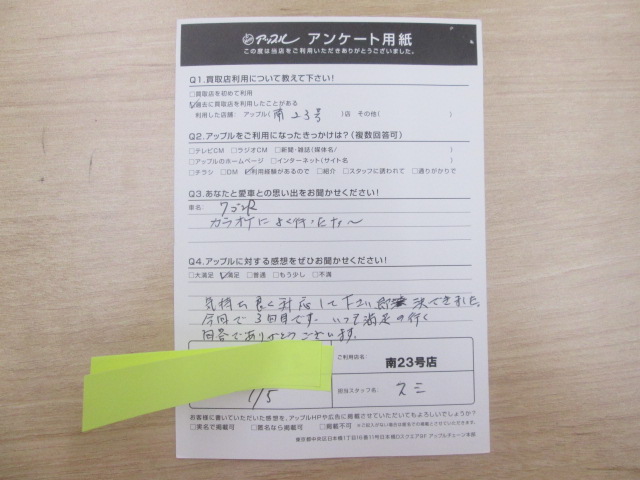 アップル アンケート用紙
この度は当店をご利用いただきありがとうございました。
Q1.買取店利用について教えて下さい!
□買取店を初めて利用
☑過去に買取店を利用したことがある
利用した店舗: アップル( 南23号 )店 その他( )
Q2.アップルをご利用になったきっかけは?(複数回答可)
□テレビCM □ラジオCM □新聞・雑誌(媒体名/ )
□アップルのホームページ □インターネット(サイト名 )
□チラシ □DM ☑利用経験があるので □紹介 □スタッフに誘われて □通りがかりで
Q3.あなたと愛車との思い出をお聞かせください!
車名: ワゴンR
カラオケによく行ったな〜
Q4.アップルに対する感想をぜひお聞かせください!
□大満足 ☑満足 □普通 □もう少し □不満
気持ち良く対応して下さい即決できました。
今回で3回目です。いつも満足の行く
回答でありがとうございます。
ご利用店名: 南23号店
1/5
担当スタッフ名: スミ
お客様に書いていただいた感想を、アップルHPや広告に掲載させていただいてもよろしいでしょうか?
□実名で掲載可 □匿名なら掲載可 □掲載不可 ※ご記入がない場合は匿名での掲載とさせていただきます。
東京都中央区日本橋1丁目16番11号日本橋Dスクエア8F アップルチェーン本部